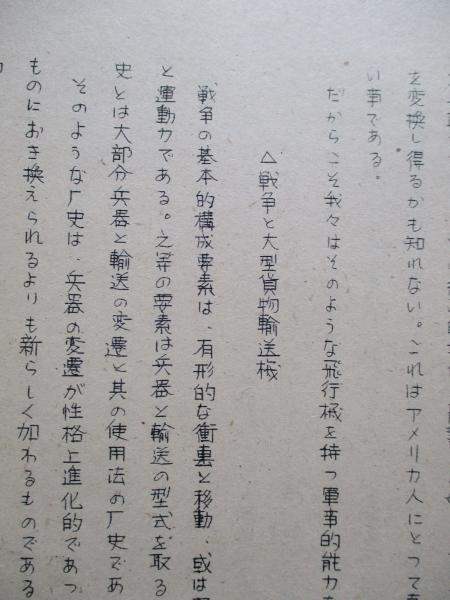 を変換し得るかも知れない。これはアメリカ人にとって
い事である。
だからこそ我々はそのような飛行械を持つ軍事的能力を
△戦争と大型貨物輸送械
戦争の基本的構成要素は、有形的な衝裏と移動、或は
と運動力である。之等の要素は兵器と輸送の型式を取る
史とは大部分兵器と輸送の変遷と其の使用法の厂史であ
そのような厂史は、兵器の変遷が性格上進化的であつ
ものにおき換えられるよりも新らしく加わるものである